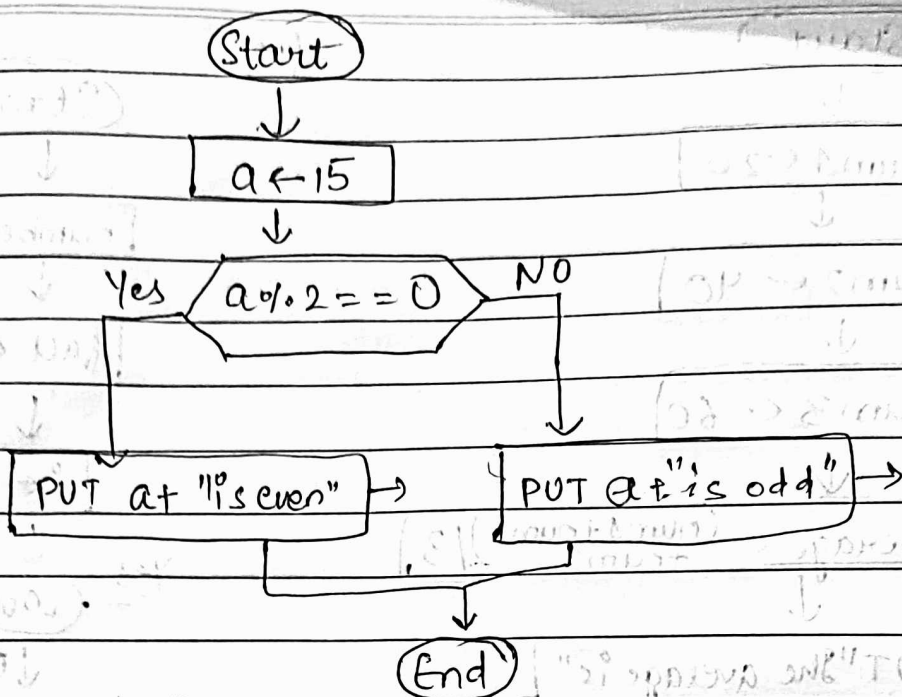 Start
a ← 15
Yes
a % 2 == 0
NO
PUT a + "is even"
PUT a + "is odd"
End